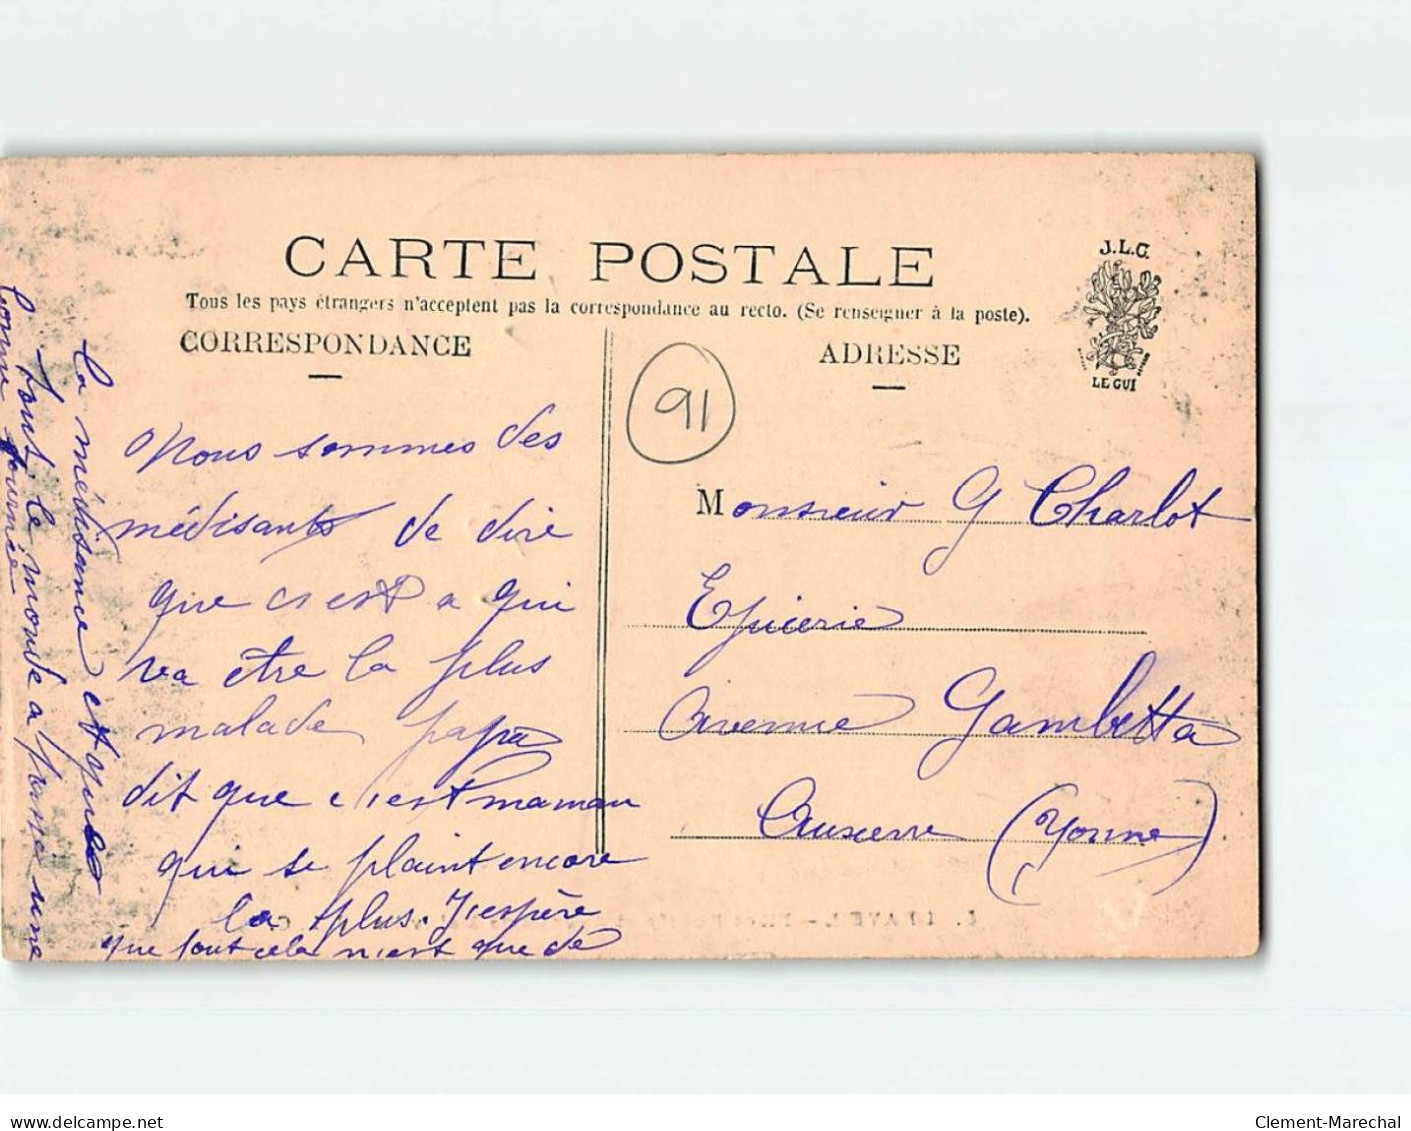 CARTE POSTALE
Tous les pays étrangers n'acceptent pas la correspondance au recto. (Se renseigner à la poste).
CORRESPONDANCE
ADRESSE
J.L.C.
LE GUI
91
Nous sommes des
médisants de dire
que c'est a qui
va être la plus
malade, papa
dit que c'est maman
qui se plaint encore
la plus. J'espère
que tout cela n'est que de
la médisance et que
tout le monde a passé une
bonne journée
Monsieur G Charlot
Epicerie
Avenue Gambetta
Auxerre (Yonne)
delcampe.net
Clement-Marechal